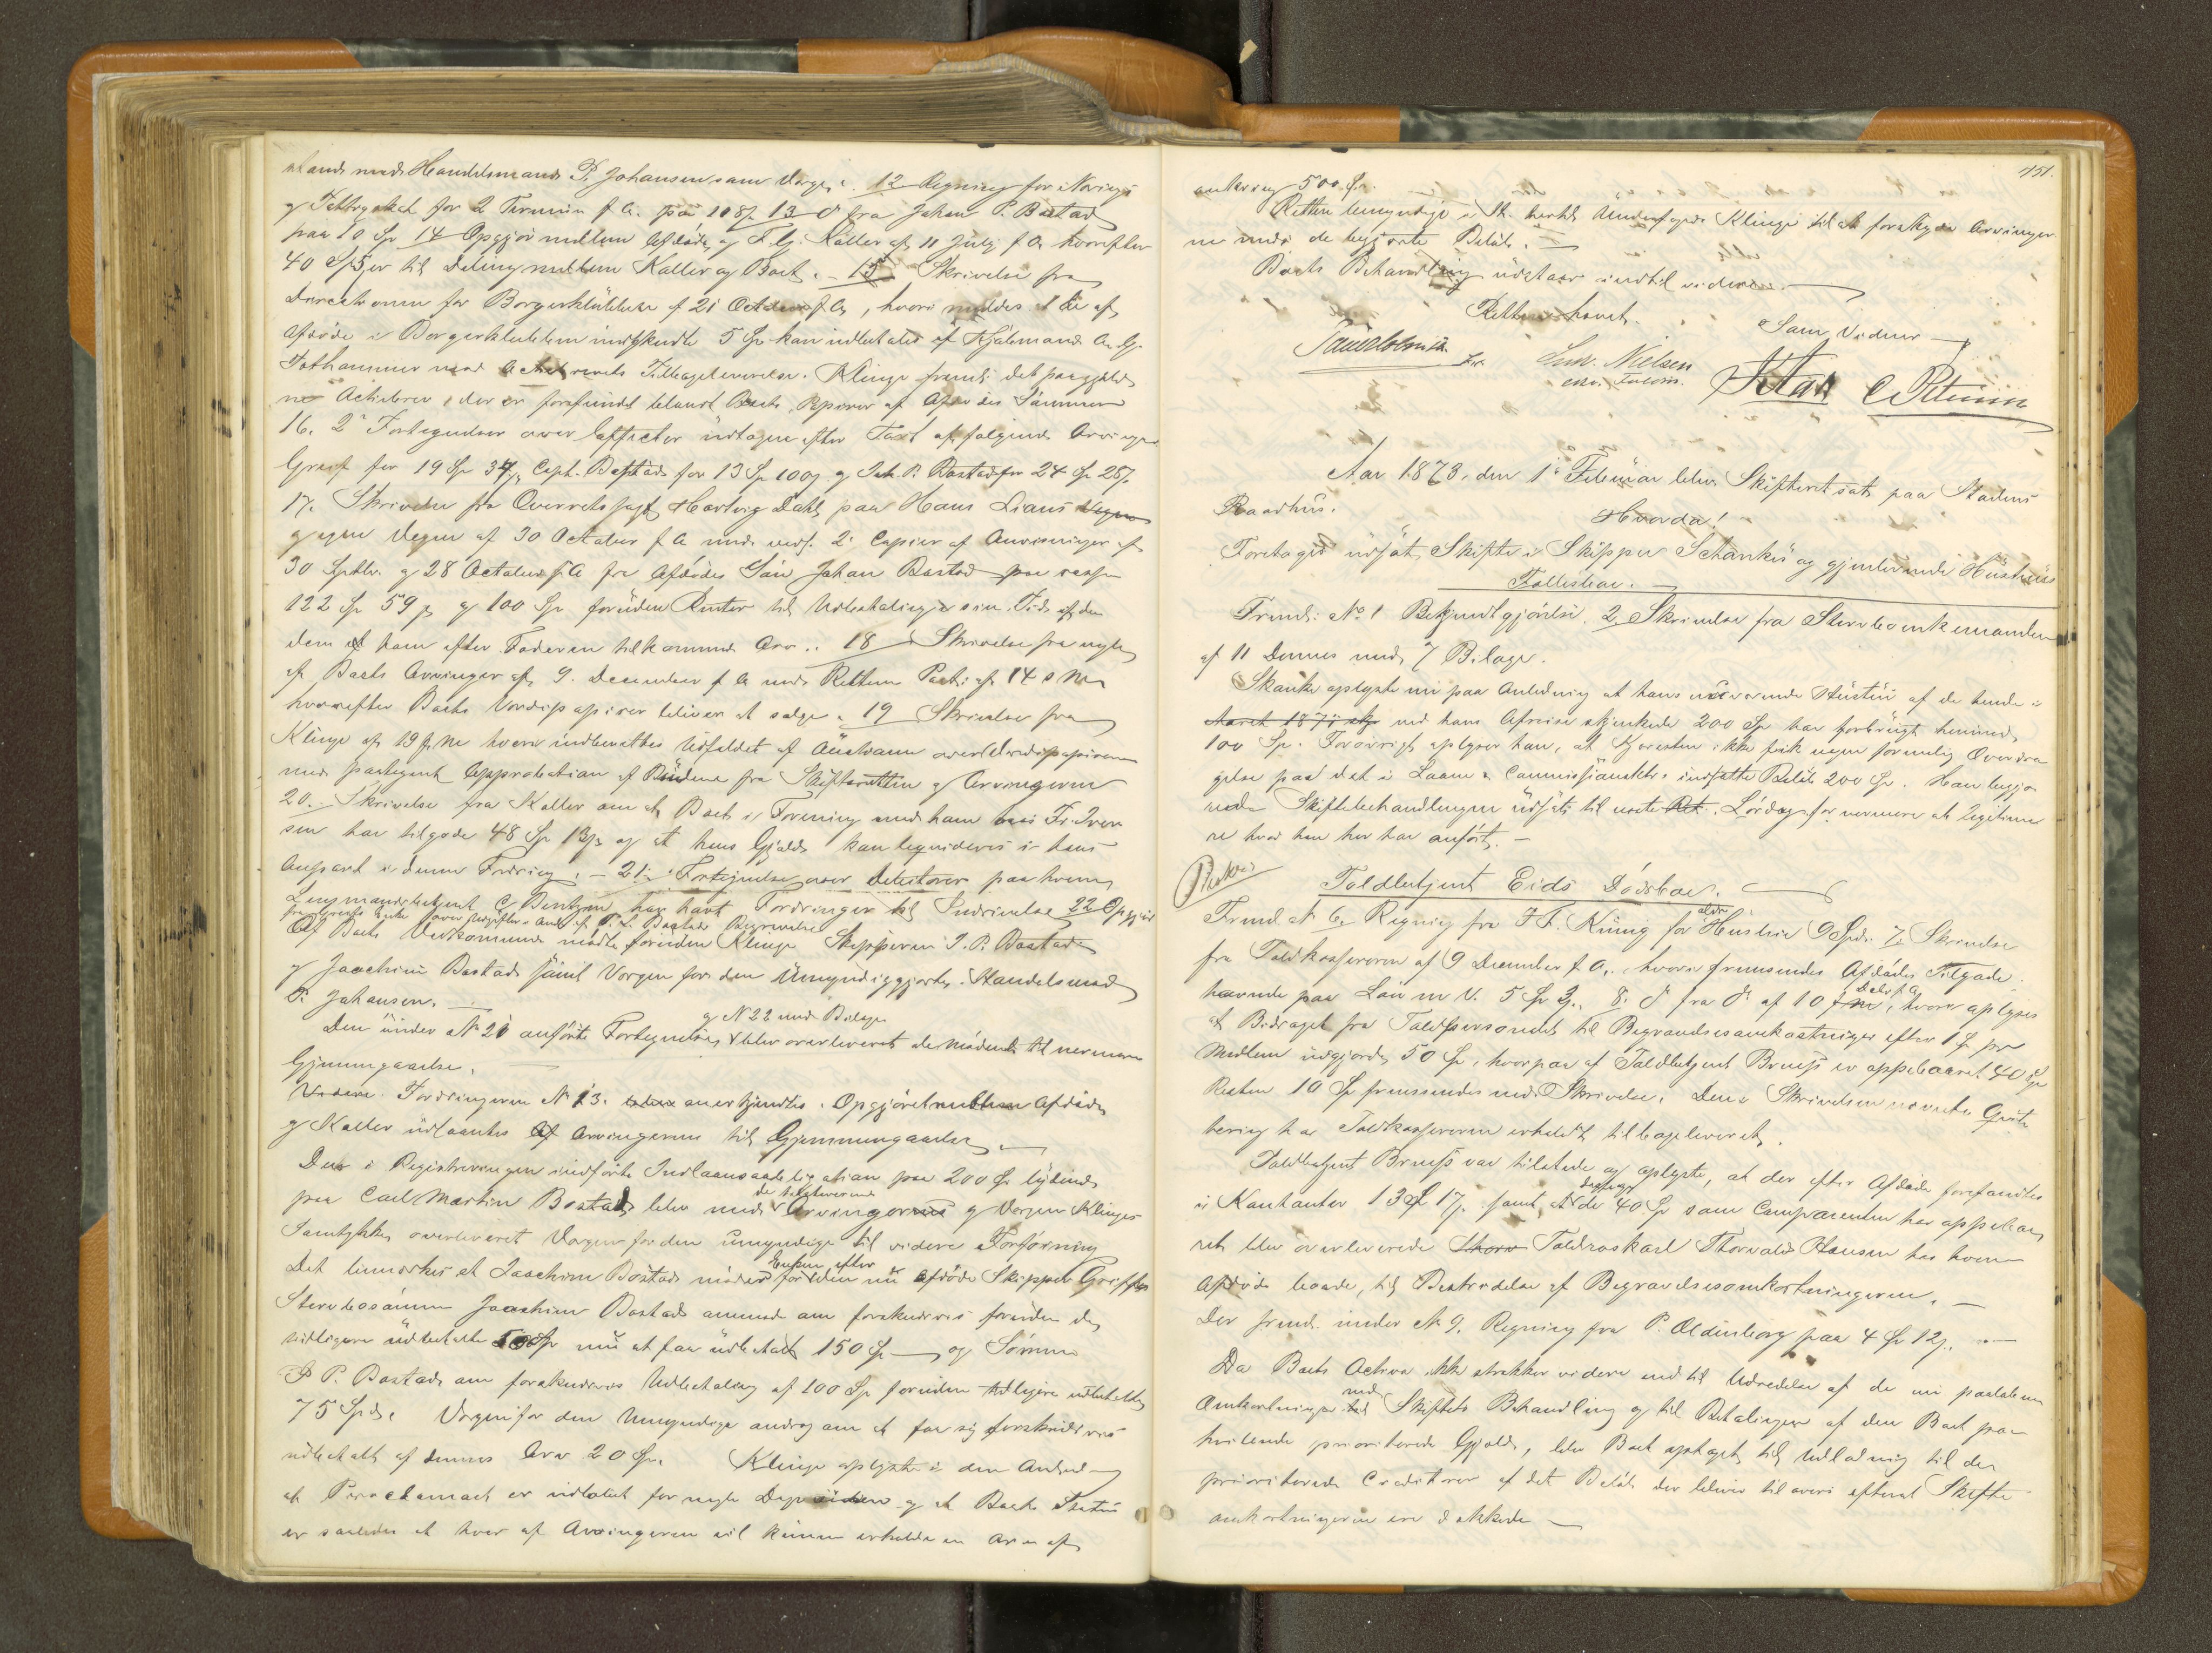 mand Handelsmand P. Johansen som Værge. 12 Regning for Nærings
g for 2 Termin f A. paa 108 ß 13 d° fra Johan P. Bastad
paa 10 Sp 14 Opgjør mellem Afdøde og Kaller af 11 July f A hvorefter
40 Sp er til Deling mellem Kaller og Boet. - 15 Skrivelse fra
Directionen for Borgerklubben af 21 October f A, hvori meldes at de af
Afdøde i Borgerklubben indskudte 5 Sp kan udbetales af
mod Tilbageleverelse. Klinge fremst: det paagjælden
ne Actiebrev, der er forefundet blandt Boets Papirer af Afdødes Sønner
16. 2 Fortegnelser over Effecter udtagne efter Taxt af følgende Arvinger
Greiff for 19 Sp 34 ß, Capt. Bastad for 13 Sp 100 ß og Joh. P. Bastad for 24 Sp 28 ß.
17. Skrivelse fra Overretssagf Hartvig Dahl paa Hans Lians Vegne
g egne Vegne af 30 October f A med 2 Copier af Anvisninger af
30 Septbr. g 28 October f A fra Afdødes Søn Johan Bastad paa resp
122 Sp 59 ß g 100 Sp foruden Renter til Udbetaling i sin Tid af den
dem af ham efter Faderen tilkommende Arv.. 18 Skrivelse fra nogle
af Boets Arvinger af 9. December f A med Rettens Paat: af 14 s M
hvorefter Boets Værdipapirer bliver at sælge. 19 Skrivelse fra
Klinge af 19 f M hvori indberettes Udfaldet af Auctionen over Værdipapirerne
med paategnet Approbation af Budene fra Skifteretten og Arvingerne
20. Skrivelse fra Kaller om at Boet i Forening med ham hos Fr. Iver
sen har tilgode 48 Sp 13 ß og at hans Gjæld kan liquideres i hans
Anpart i denne Fordring. - 21. Fortegnelse over Debitorer paa hvem
Lensmandsbetjent C. Bentzen har havt Fordringer til Inddrivelse 22 Opgjør
fra Greiffs Enke over Udgifter i Anl af P. L. Bastads Begravelse
Af Boets Vedkommende mødte foruden Klinge Skipperen J. P. Bastad
g Joachim Bastad samt Værgen for den Umyndiggjorte. Handelsmand
P. Johansen.
g N 22 med Bilage
Den under N 21 anførte Fortegnelse blev overleveret de Mødende til nærmere
Gjennemgaaelse.
Fordringerne N 13. anerkjendtes. Opgjøret mellem Afdøde
g Kaller udlaantes Arvingerne til Gjennemgaaelse.
Den i Registreringen indførte Indlaansobligation paa 200 Sp lydende
de tilstedeværende
paa Carl Martin Bastad blev med Arvingerne g Værgen Klinges
Samtykke overleveret Værgen for den umyndige til videre Forføining
Enken efter
Det bemærkes at Joachim Bastad møder for den nu afdøde Skipper Greiffs
Stervbo samme Joachim Bastad anmode om forskudsvis foruden de
tidligere udbetalte 50 Sp nu at faa udbetalt 150 Sp og Sønnen
J P. Bastad om forskudsvis Udbetaling af 100 Sp foruden tidligere udbetalte
75 Spd. Værgen for den Umyndige androg om at faa sig forskudsvis
udbetalt af dennes Arv 20 Sp. Klinge oplyste i den Anledning
at Proclamaet er udløbet for nogle Dage siden g at Boets Status
er saaledes at hver af Arvingerne vil kunne erholde en Arv af
151.
omkring 500 Sp.
Retten bemyndige i St. herhos Underfoged Klinge til at forskyde Arvinger
ne med de begjærte Beløb.
Boets Behandling udstaar indtil videre.
Retten hævet.
Som Vidner
Lud. Nielsen
C Petersen
Aar 1873. den 1 Februar blev Skifteret sat paa Stadens
Raadhus.
Hvorda!
Foretoges udsat Skifte i Skipper Schankes og gjenlevende Hustrus
Fællesbo.
Fremst: No 1 Bekjendtgjørelse. 2, Skrivelse fra Stervboenkemanden
af 11 Dennes med 7 Bilage.
Skanke oplyste nu paa Anledning at hans nuværende Hustru af de hende i
Aaret 1871 ved hans Afreise skjenkede 200 Sp har forbrugt henimod
100 Sp. Forøvrigt oplyser han, at Kjøresten ikke fik nogen formelig Overdra
gelse paa det i Laane & Commissionskts. indsatte Beløb 200 Sp. Han begjæ
rede Skiftebehandlingen udsat til næste Lørdag for nærmere at legitime
re hvad han her har anført. -
Toldbetjent Eids Dødsbo.
ældre
Fremst N 6. Regning fra F. F. König for Husleie 9 Spd. 7. Skrivelse
fra Toldkassereren af 9 December f A., hvori fremsendes Afdødes Tilgode
havende paa Løn m V. 5 Sp 3 ß. 8. d° fra d° af 10 Decbr f A, hvori oplyses
at Bidraget fra Toldpersonalet til Begravelsesomkostninger efter 1 Sp pr
Medlem udgjorde 50 Sp, hvorpaa af Toldbetjent Bruuss er oppebaaret 40 Sp
Resten 10 Sp fremsendes med Skrivelse. Den i Skrivelsen nævnte Qvit
tering har Toldkassereren erholdt tilbageleveret.
Toldbetjent Bruuss var tilstede og oplyste, at der efter Afdøde forefandtes
i Kontanter 13 Sp 17 ß. samt at de 40 Sp som Comparenten har oppebaa
ret blev overleverede Toldroskarl Thorvald Hansen hos hvem
Afdøde boede, til Bestridelse af Begravelsesomkostningerne. -
Der fremst. under N 9. Regning fra P. Oldenborg paa 4 Sp 12 ß.
Da Boets Activa ikke strækker videre end til Udredelse af de nu paaløbne
Omkostninger ved Skiftets Behandling og til Betalingen af den Boet paa
hvilende prioriterede Gjæld, blev Boet optaget til Udlodning til de
prioriterede Creditorer af det Beløb der bliver tilovers efterat Skifte
omkostningerne ere dækkede